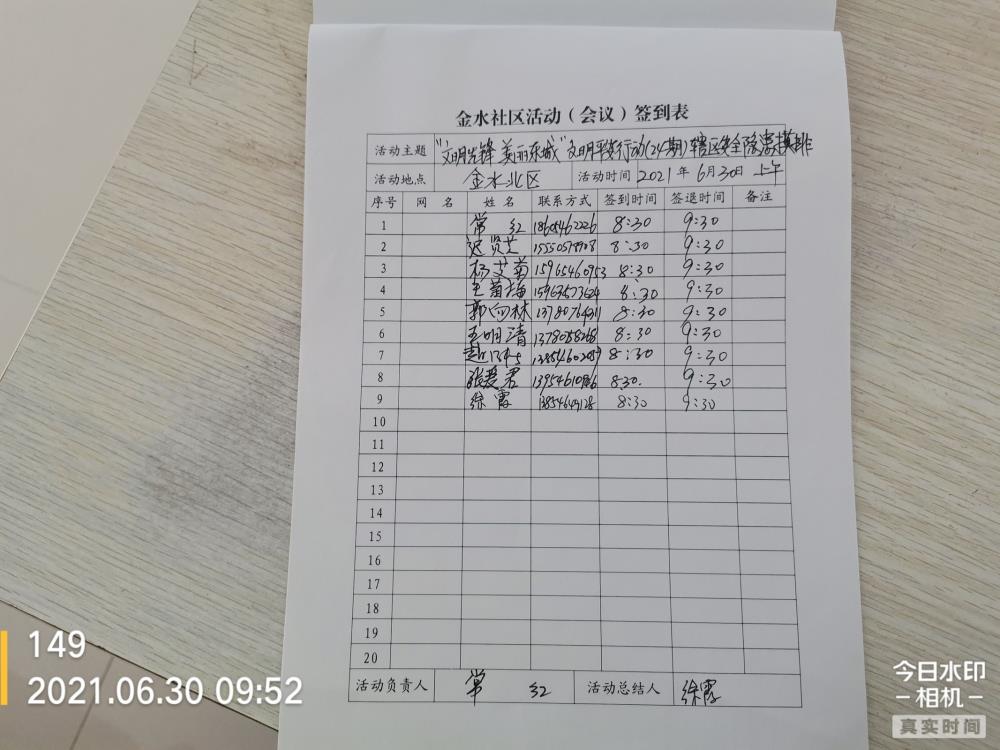 金水社区活动（会议）签到表
活动主题 "文明先锋 美丽东城"文明平安行动(24期)辖区安全隐患摸排
活动地点 金水北区 活动时间 2021年6月30日 上午
序号 网 名 姓 名 联系方式 签到时间 签退时间 备注
1 常 红 8:30 9:30
2 迟贤芝 8:30 9:30
3 杨艾菊 15965460953 8:30 9:30
4 王菊梅 15963573624 8:30 9:30
5 郭向林 8:30 9:30
6 王明清 8:30 9:30
7 8:30 9:30
8 张爱君 8:30. 9:30
9 徐霞 8:30 9:30
10
11
12
13
14
15
16
17
18
19
20
活动负责人 常 红 活动总结人 徐霞
149
2021.06.30 09:52
今日水印
相机
真实时间